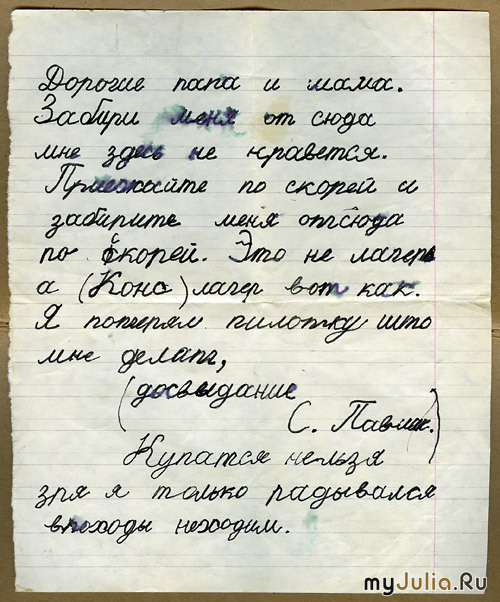 Дорогие папа и мама.
Забири меня от сюда
мне здесь не нравется.
Приежайте по скорей и
забирите меня отсюда
по скорей. Это не лагерь
а (Конс) лагер вот как.
Я потерял пилотку што
мне делать,
(досвидание
С. Павлик.)
Купатся нельзя
зря я только радывался
впоходы неходим.
myJulia.Ru